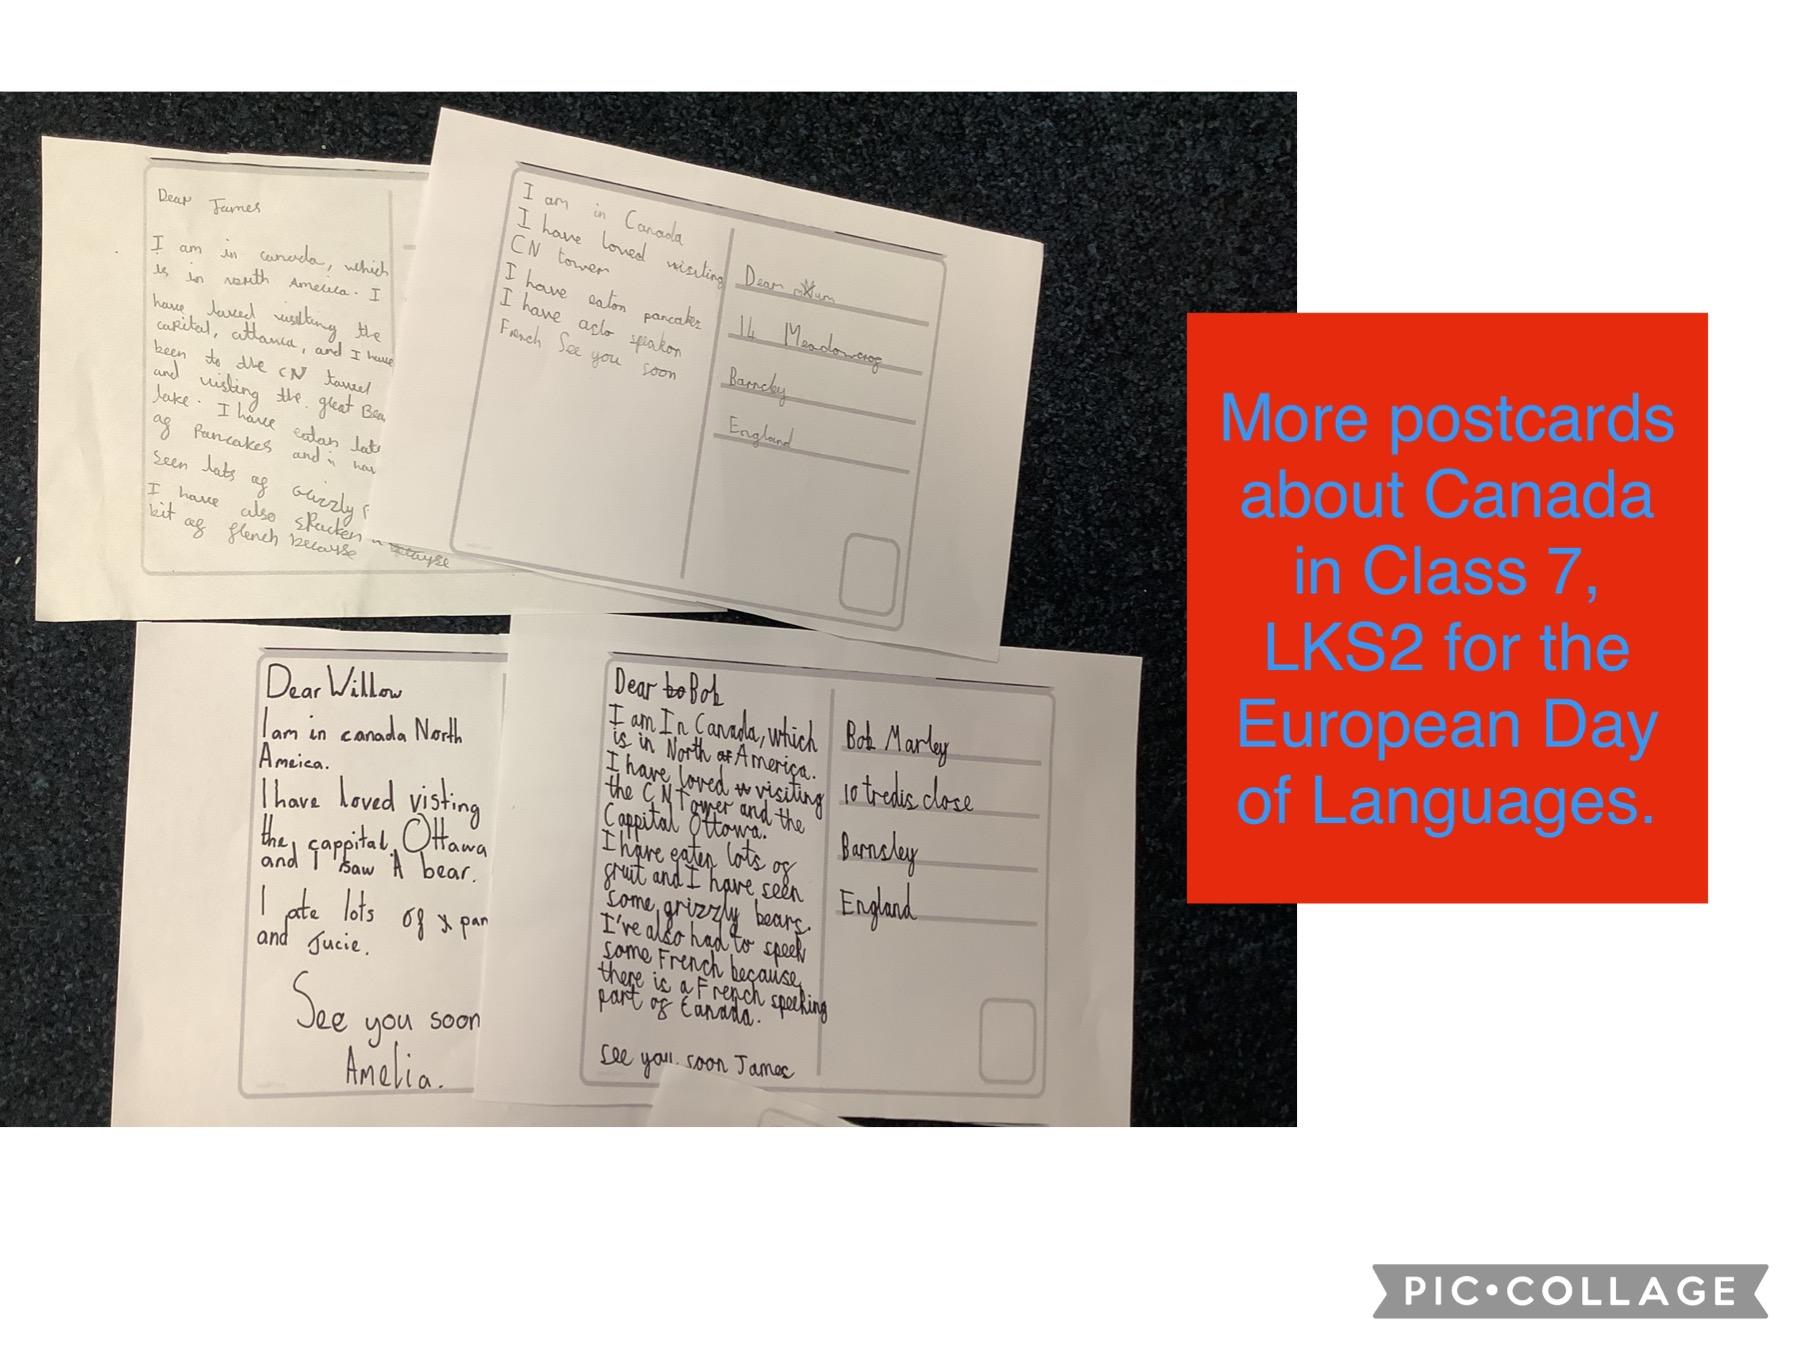 Dear James
I am in canada, which
is in north America. I
have loved visiting the
capital, ottawa, and I have
been to the CN tower
and visting the great Bea
lake. I have eatan lots
of Pancakes and hav
seen lots of Grizzly
I have also sPucken a
bit of french because
I am in Canada
I have loved visiting
CN tower
I have eaton pancakes
I have aslo speakon
French See you soon
Dear mum
14 Meadowcrog
Barnsley
England
Dear Willow
I am in canada North
Ameica.
I have loved visting
the cappital. Ottawa
and I saw A bear.
I ate lots of pan
and Jucie.
See you soon
Amelia.
Dear to Bob
I am In Canada, which
is in North of America.
I have loved visiting
the CN Tower and the
Cappital Ottowa.
I have eaten lots of
fruit and I have seen
some grizzly bears.
I've also had to speek
some French because
there is a French speeking
part of Canada.
see you soon James
Bob Marley
10 tredis close
Barnsley
England
More postcards
about Canada
in Class 7,
LKS2 for the
European Day
of Languages.
PIC•COLLAGE